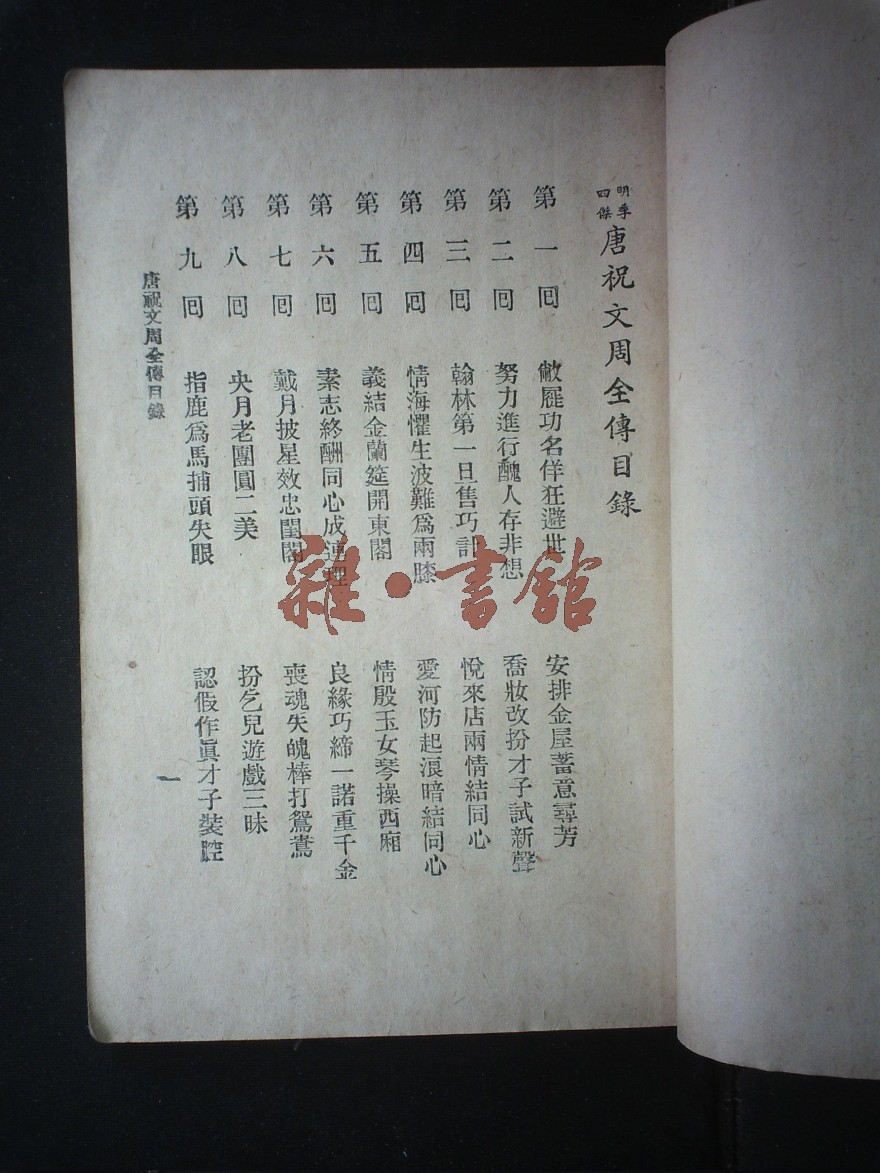 明季四傑 唐祝文周全傳目錄
第一回 敝屣功名佯狂避世 安排金屋蓄意尋芳
第二回 努力進行醜人存非想 喬妝改扮才子試新聲
第三回 翰林第一旦售巧計 悅來店兩情結同心
第四回 情海懼生波難爲兩膝 愛河防起浪暗結同心
第五回 義結金蘭筵開東閣 情殷玉女琴操西廂
第六回 素志終酬同心成連理 良緣巧締一諾重千金
第七回 戴月披星效忠閨閣 喪魂失魄棒打鴛鴦
第八回 央月老團圓二美 扮乞兒遊戲三昧
第九回 指鹿爲馬捕頭失眼 認假作眞才子裝腔
唐祝文周全傳目錄
一
雜·書館